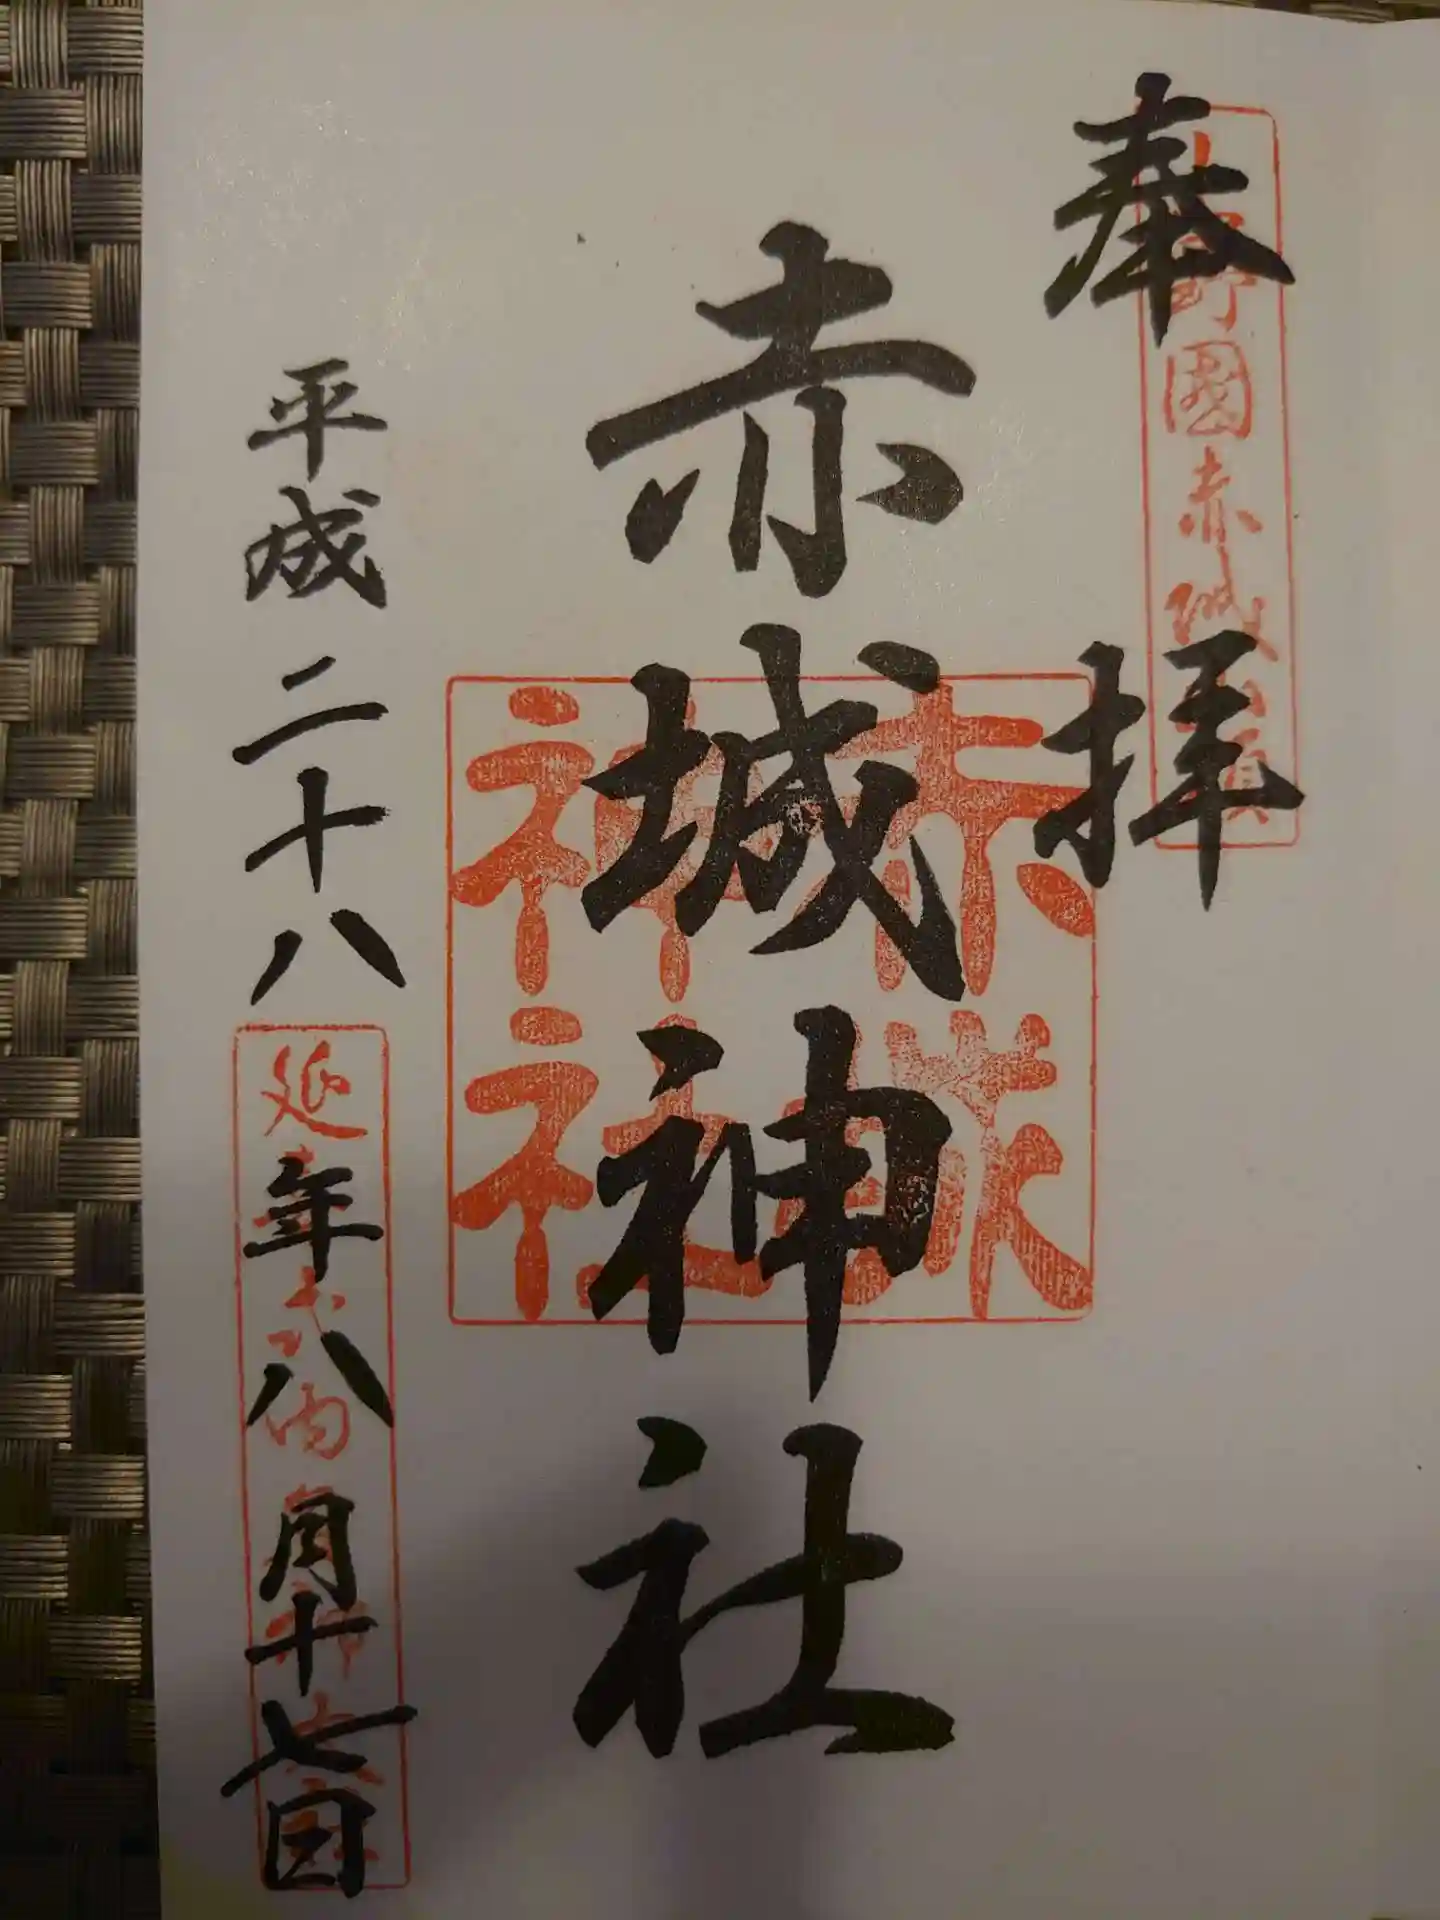 奉拝
上野國赤城山頂
赤城神社
赤城
神社
平成二十八年八月十七日